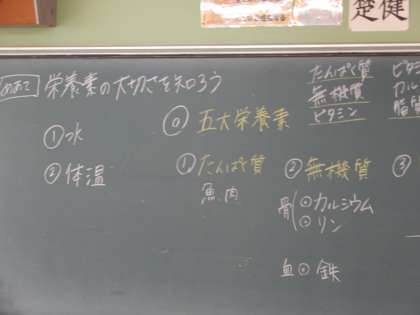 楚健
めあて 栄養素の大切さを知ろう
たんぱく質
無機質
ビタミン
ビタミ
カル
脂質
①水
②体温
◎五大栄養素
①たんぱく質
魚肉
②無機質
骨 ⊙カルシウム
⊙リン
血⊙鉄
③